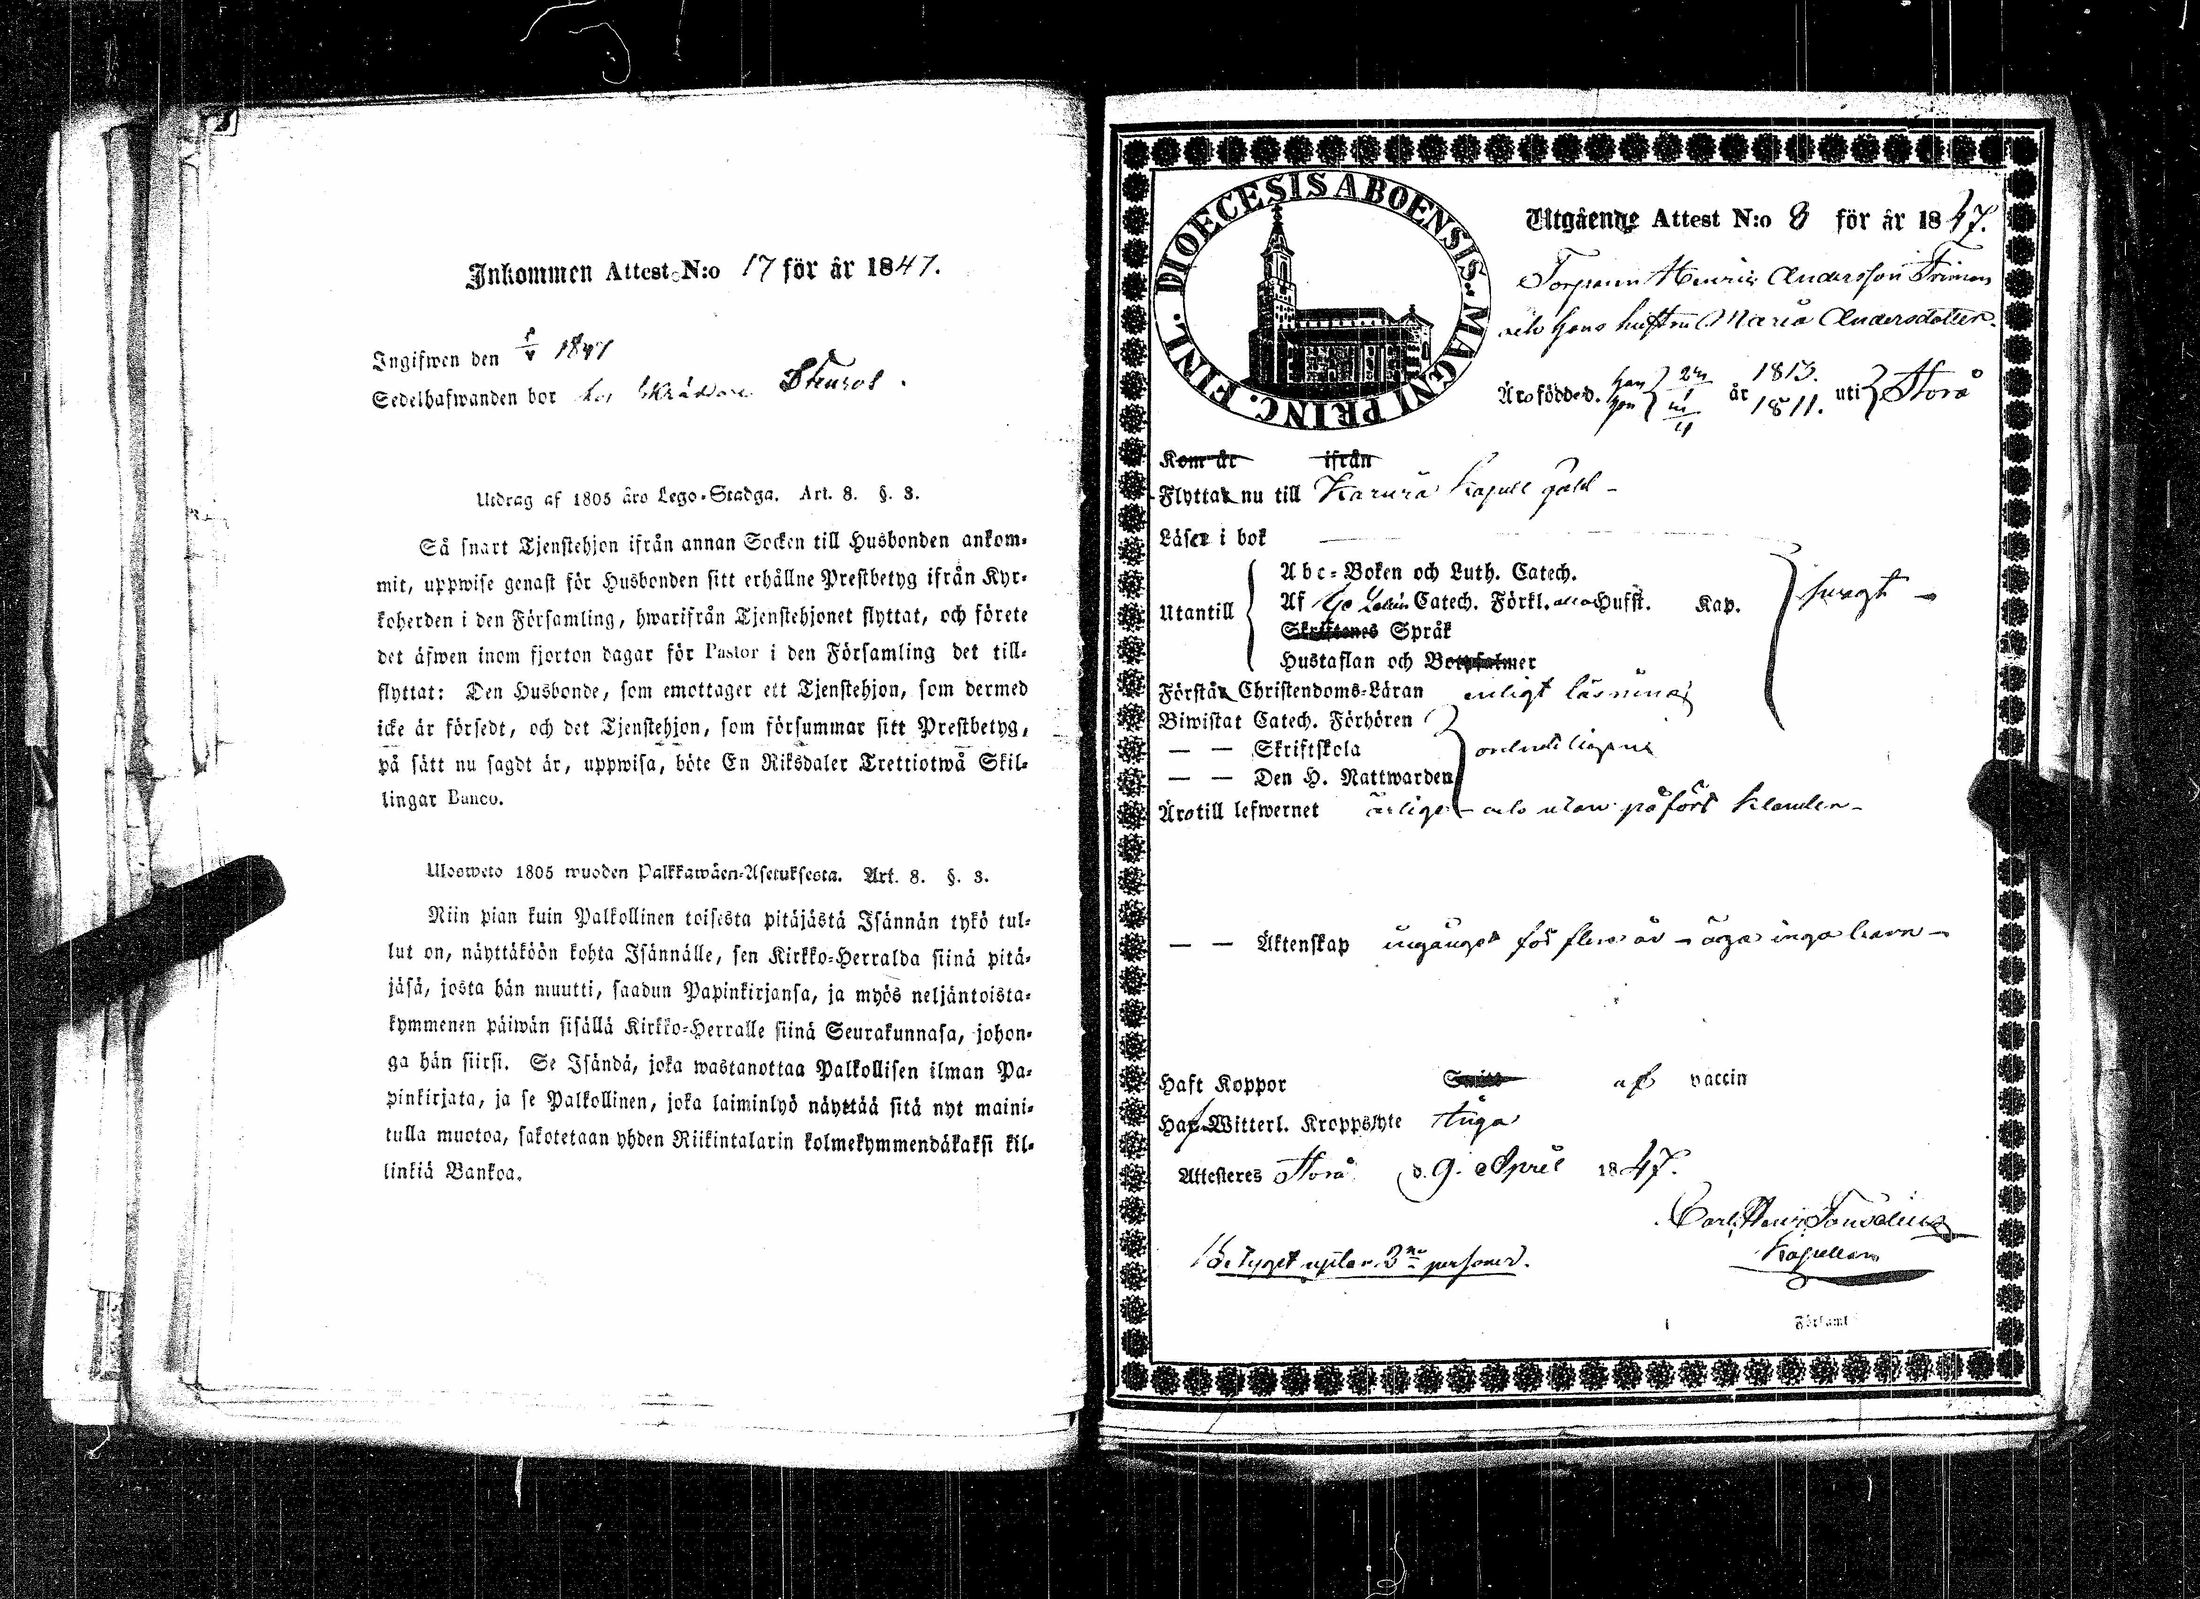 Inkommen Attest N:o 17 för år 1847.
Ingifwen den 1847
Sedelhafwanden bor hos Skräddare Stenros.
Utdrag af 1805 års Lego-Stadga. Art. 8. §. 3.
Så snart Tjenstehjon ifrån annan Socken till Husbonden ankom-
mit, uppwise genast för Husbonden sitt erhållne Prestbetyg ifrån Kyr-
koherden i den Församling, hwarifrån Tjenstehjonet flyttat, och förete
det äfwen inom fjorton dagar för Pastor i den Församling det till-
flyttat: Den Husbonde, som emottager ett Tjenstehjon, som dermed
icke är försedt, och det Tjenstehjon, som försummar sitt Prestbetyg,
på sätt nu sagdt är, uppwisa, böte En Riksdaler Trettiotwå Skil-
lingar Banco.
Ulosweto 1805 wuoden Palkkawäen-Asetuksesta. Art. 8. §. 3.
Niin pian kuin Palkollinen toisesta pitäjästä Isännän tykö tul-
lut on, näyttäköön kohta Isännälle, sen Kirkko-Herralda siinä pitä-
jäsä, josta hän muutti, saadun Papinkirjansa, ja myös neljäntoista-
kymmenen päiwän sisällä Kirkko-Herralle siinä Seurakunnasa, johon-
ga hän siirsi. Se Isändä, joka wastanottaa Palkollisen ilman Pa-
pinkirjata, ja se Palkollinen, joka laiminlyö näyttää sitä nyt maini-
tulla muotoa, sakotetaan yhden Riikintalarin kolmekymmendäkaksi kil-
linkiä Bankoa.
DIOECESIS ABOENSIS. MAGNI PRINC. FINL.
Utgående Attest N:o 8 för år 1847.
Torparen Henric Andersson
och hans hustru Maria Andersdotter.
Äro födde d. han 27/1 år 1813. uti Storå
hon 1811.
Kom år ifrån
Flyttar nu till Karvia Kapell Gäld
Läser i bok
Utantill Abc-Boken och Luth. Catech.
Af Catech. Förkl. Hufst. Kap. swagt
Skriftenes Språk
Hustaflan och Botpsalmer
Förstår Christendoms-Läran enligt läsning
Biwistat Catech. Förhören
— — Skriftskola ordentligen
— — Den H. Nattwarden
Äro till lefwernet ärlige och utan påfört klander
— — Äktenskap ingånget för flera år – äga inga barn –
Haft Koppor Smitt af vaccin
Haf Witterl. Kroppslyte Inga
Attesteres Storå d. 9. April 1847.
Carl Henr.
Kapellan
Betyget uptar 2ne personer.
Församl